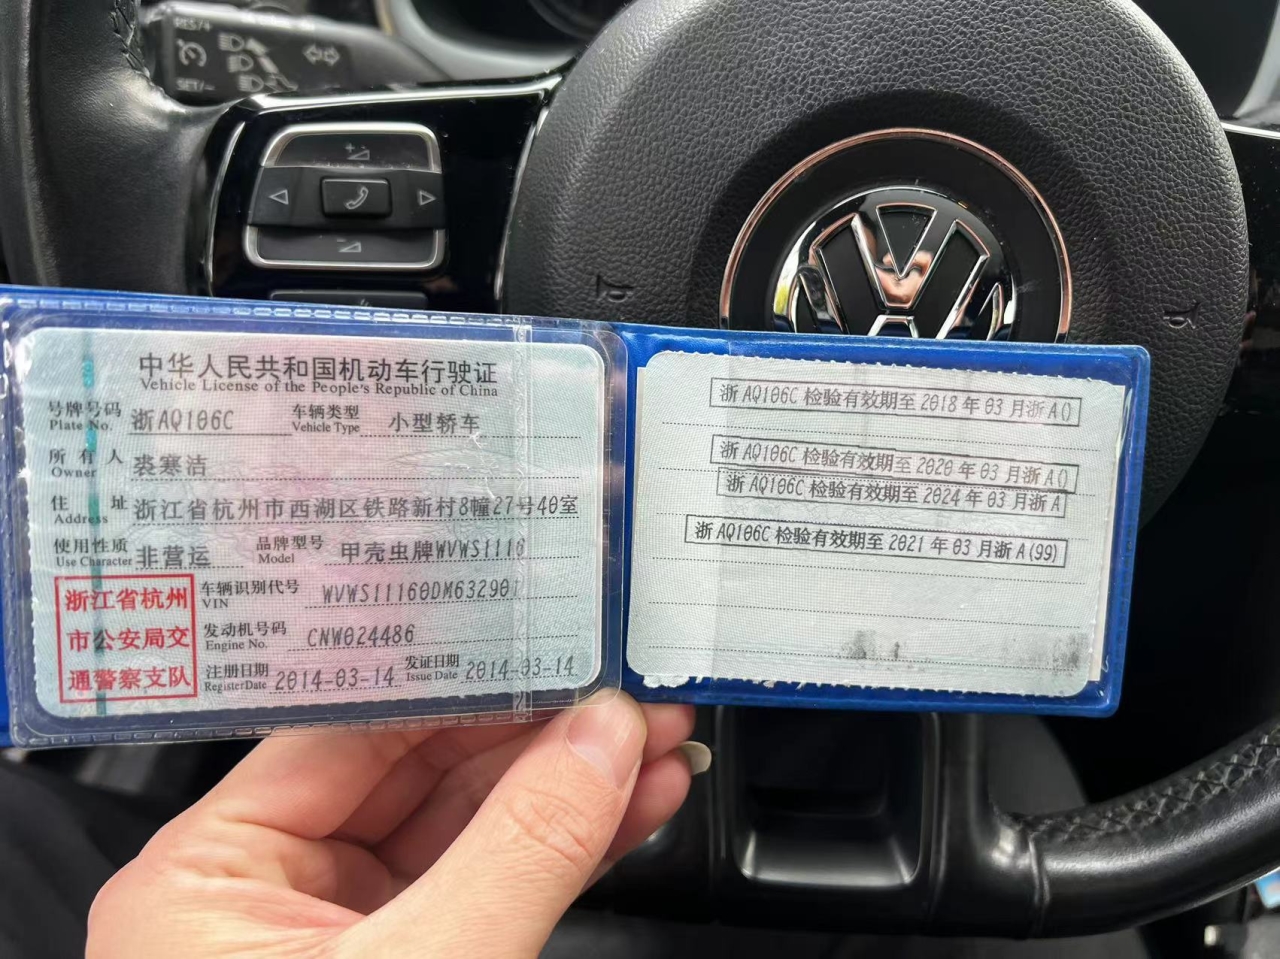 RES/+
SET/-
中华人民共和国机动车行驶证
Vehicle License of the People's Republic of China
号牌号码 浙AQ106C 车辆类型 小型轿车
Plate No. Vehicle Type
所有人 裘寒洁
Owner
住址 浙江省杭州市西湖区铁路新村8幢27号40室
Address
使用性质 非营运 品牌型号 甲壳虫牌WVWS1116
Use Character Model
浙江省杭州
市公安局交
通警察支队
车辆识别代号 WVWS11160DM632901
VIN
发动机号码 CNW024486
Engine No.
注册日期 2014-03-14 发证日期 2014-03-14
Register Date Issue Date
浙AQ106C检验有效期至2018年03月浙A()
浙AQ106C检验有效期至2020年03月浙A()
浙AQ106C检验有效期至2024年03月浙A
浙AQ106C检验有效期至2021年03月浙A(99)